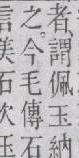 者謂佩玉納
之今毛傳石
信美石次玉